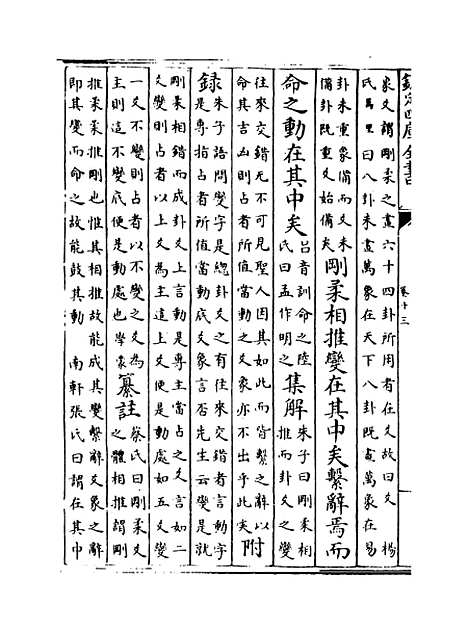 欽定四庫全書
卷十三
象爻謂剛柔之畫六十四卦所用者在爻故曰爻 楊
氏萬里曰八卦未畫萬象在天下八卦既畫萬象在易
卦未重象備而爻未
備卦既重爻始備矣
剛柔相推變在其中矣繫辭焉而
命之動在其中矣
呂音訓命之陸
氏曰孟作明之
集解
朱子曰剛柔相
推而卦爻之變
往來交錯无不可見聖人因其如此而皆繫之辭以
命其吉凶則占者所值當動之爻象亦不出乎此矣
附
録
朱子語問變字是總卦爻之有往來交錯者言動字
是專指占者所值當動底爻象言否先生云變是就
剛柔相錯而成卦爻上言動是專主當占之爻言如二
爻變則占者以上爻為主這上爻便是動處如五爻變
一爻不變則占者以不變之爻為
主則這不變底便是動處也學蒙
纂註
蔡氏曰剛柔爻
之體相推謂剛
推柔柔推剛也惟其相推故能成其變繫辭爻象之辭
即其變而命之故能鼓其動 南軒張氏曰謂在其中